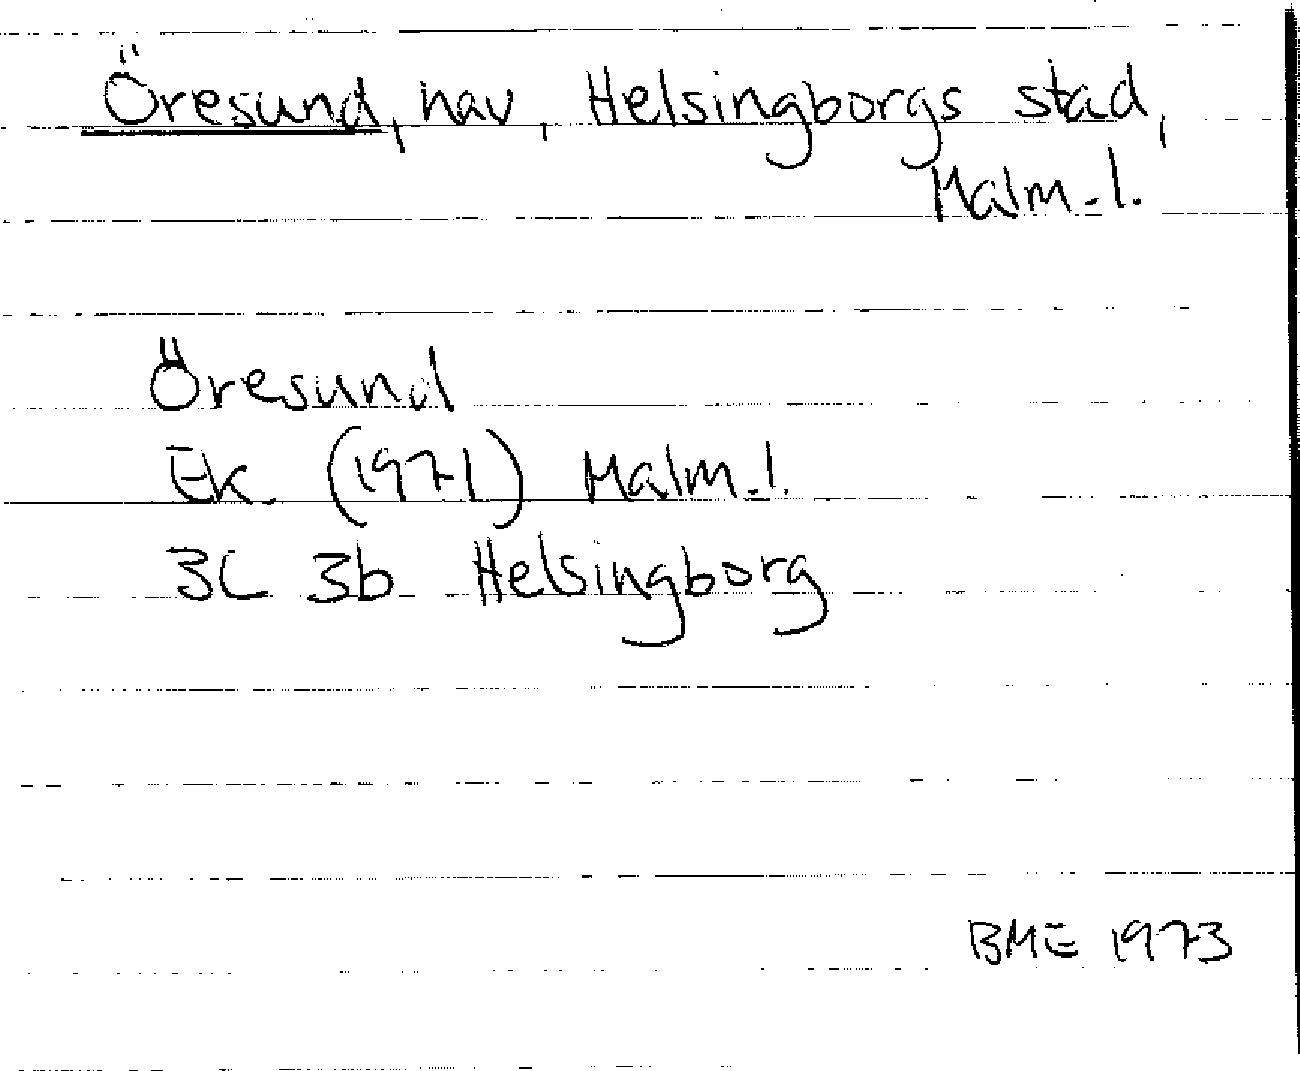 Öresund, hav, Helsingborgs stad,
Malm.l.
Öresund
Ek. (1971) Malm.l.
3C 3b Helsingborg
BME 1973